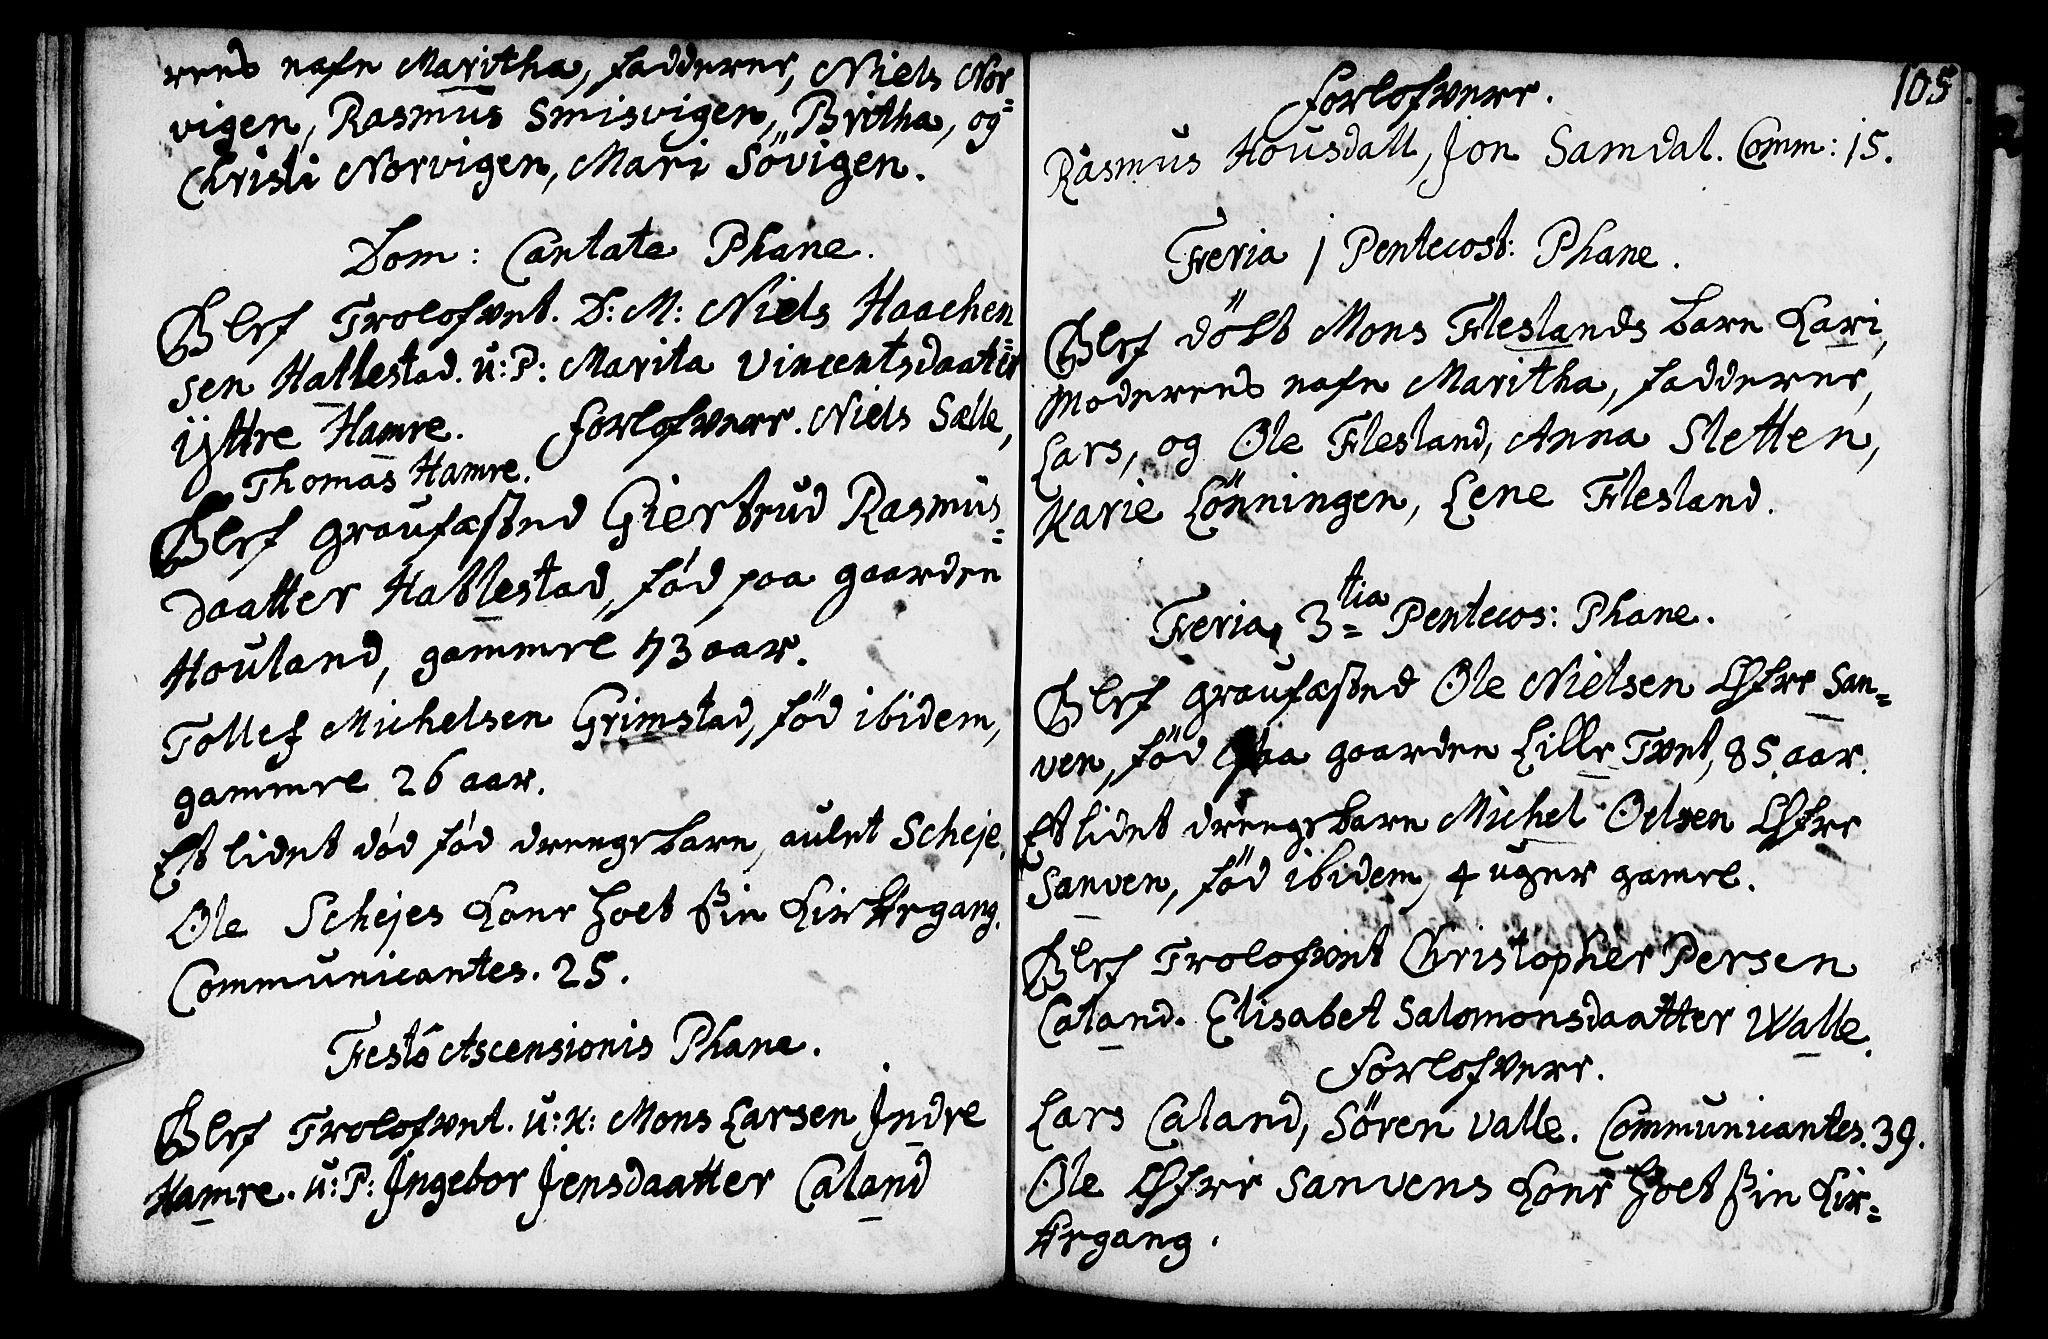 rens nafn Maritha, fadderne, Niels Nor=
vigen, Rasmus Smisvigen, Britha, og
Christi Norvigen, Mari Sövigen.
Dom: Cantate Phane.
Blef Trolofvet. D: M: Niels Haachen=
sen Hattlestad. U: P: Marita Vincentsdaatter
Yttre Hamre. Forlofvere. Niels Sælle,
Thomas Hamre.
Blef graufæsted Giertrud Rasmus=
daatter Hattlestad, fød paa gaarden
Houland, gammel 73 aar.
Tollef Michelsen Grimstad, föd ibidem,
gammel 26 aar.
Et lidet död föd drengebarn, aulet Scheje.
Ole Schejes Kone hoet sin Kirkegang.
Communicantes. 25.
Festo Ascensionis Phane.
Blef Trolofvet. U: K: Mons Larsen Indre
Hamre. U: P: Ingebor Jensdaatter Caland
105.
Forlofvere.
Rasmus Housdall, Jon Samdal. Comm: 15.
Feria 1 Pentecost: Phane.
Blef döbt Mons Fleslands barn Kari,
Moderens nafn Maritha, fadderne,
Lars, og Ole Flesland, Anna Sletten,
Karie Lönningen, Lene Flesland.
Feria 3tia= Pentecos: Phane.
Blef graufæsted Ole Nielsen Öfre San=
ven, föd paa gaarden Lille Tvet, 85 aar.
Et lidet drengebarn Michel Oelsen Öfre
Sanven, föd ibidem, 4 uger gamel.
Blef Trolofvet Christopher Persen
Caland. Elisabet Salomonsdaatter Walle.
Forlofvere.
Lars Caland, Sören Valle. Communicantes. 39.
Ole Öfre Sanvens Kone hoet sin Kir=
kegang.